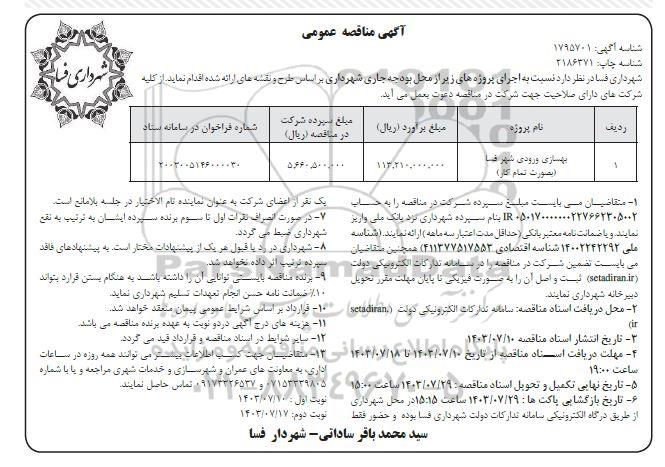 آگهی مناقصه عمومی
شهرداری فسا
شناسه آگهی: ۱۷۹۵۷۰۱
شناسه چاپ: ۲۱۸۶۳۷۱
شهرداری فسا در نظر دارد نسبت به اجرای پروژه های زیر از محل بودجه جاری شهرداری بر اساس طرح و نقشه های ارائه شده اقدام نماید. از کلیه
شرکت های دارای صلاحیت جهت شرکت در مناقصه دعوت بعمل می آید.
ردیف نام پروژه مبلغ برآورد (ریال) مبلغ سپرده شرکت در مناقصه (ریال) شماره فراخوان در سامانه ستاد
۱ بهسازی ورودی شهر فسا (بصورت تمام کار) ۱۱۳,۲۱۰,۰۰۰,۰۰۰ ۵,۶۶۰,۵۰۰,۰۰۰ ۲۰۰۳۰۰۵۱۴۶۰۰۰۰۳۰
۱- متقاضیان می بایست مبلغ سپرده شرکت در مناقصه را به حساب
IR بنام سپرده شهرداری نزد بانک ملی واریز
نمایند. و یا ضمانت نامه معتبر بانکی (حداقل مدت اعتبار سه ماهه) ارائه نمایند. (شناسه
ملی ۱۴۰۰۲۲۴۲۲۹۲ شناسه اقتصادی ۴۱۱۳۷۷۵۱۷۵۵۳) همچنین متقاضیان
می بایست تضمین شرکت در مناقصه را در سامانه تدارکات الکترونیکی دولت
(setadiran.ir) ثبت و اصل آن را به صورت فیزیکی تا پایان مهلت مقرر تحویل
دبیرخانه شهرداری نمایند.
۲- محل دریافت اسناد مناقصه: سامانه تدارکات الکترونیکی دولت (setadiran.
ir)
۳- تاریخ انتشار اسناد مناقصه ۱۴۰۳/۰۷/۱۰
۴- مهلت دریافت اسناد مناقصه از تاریخ ۱۴۰۳/۰۷/۱۰ تا ۱۴۰۳/۰۷/۱۸
ساعت ۱۹:۰۰
۵- تاریخ نهایی تکمیل و تحویل اسناد مناقصه : ۱۴۰۳/۰۷/۲۹ ساعت ۱۵:۰۰
۶- تاریخ بازگشایی پاکت ها : ۱۴۰۳/۰۷/۲۹ ساعت ۱۵:۱۵ در محل شهرداری
از طریق درگاه الکترونیکی سامانه تدارکات دولت شهرداری فسا بوده و حضور فقط
یک نفر از اعضای شرکت به عنوان نماینده تام الاختیار در جلسه بلامانع است.
۷- در صورت انصراف نفرات اول تا سوم برنده سپرده ایشان به ترتیب به نفع
شهرداری ضبط می گردد.
۸- شهرداری در رد یا قبول هر یک از پیشنهادات مختار است. به پیشنهادهای فاقد
سپرده ترتیب اثر داده نخواهد شد.
۹- برنده مناقصه بایستی توانایی آن را داشته باشند به هنگام بستن قرارد بتواند
۱۰٪ ضمانت نامه حسن انجام تعهدات تسلیم شهرداری نماید.
۱۰- قرارداد بر اساس شرایط عمومی پیمان منعقد خواهد شد.
۱۱- هزینه های درج آگهی دردو نوبت به عهده برنده مناقصه می باشد.
۱۲- سایر شرایط در اسناد مناقصه و قرارداد قید می گردد.
۱۳- متقاضیان جهت کسب اطلاعات بیشتر می توانند همه روزه در ساعات
اداری، به معاونت های عمران و شهرسازی و خدمات شهری مراجعه و یا با شماره
۰۷۱۵۳۳۳۹۸۰۵ و ۰۹۱۷۳۳۲۶۵۳۷ تماس حاصل نمایند.
نوبت اول : ۱۴۰۳/۰۷/۱۰
نوبت دوم: ۱۴۰۳/۰۷/۱۷
سید محمد باقر ساداتی- شهردار فسا